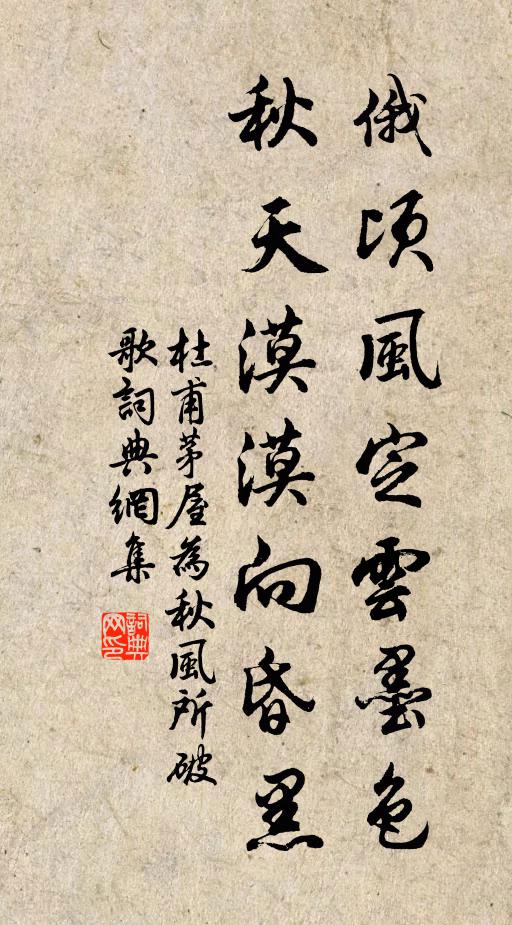 俄頃風定雲墨色
秋天漠漠向昏黑
杜甫茅屋為秋風所破
歌詞典網集
詞典
网印